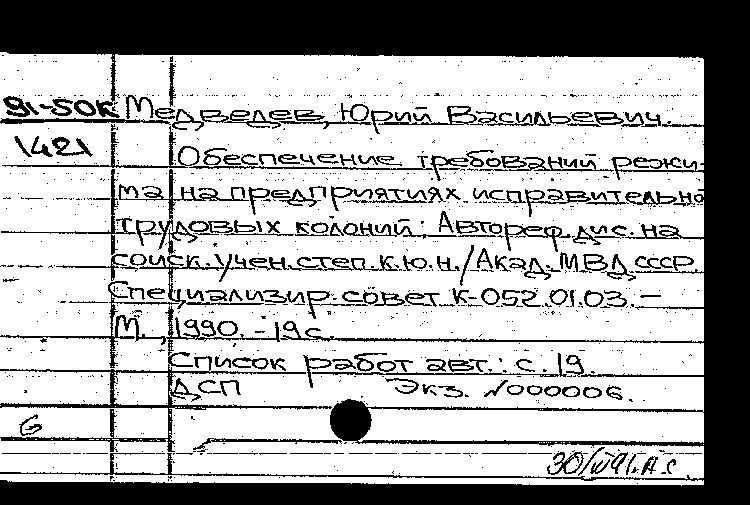 91-50к Медведев, Юрий Васильевич.
1421
Обеспечение требований режи-
ма на предприятиях исправительно
трудовых колоний: Автореф. дис. на
соиск. учен. степ. к.ю.н./Акад. МВД СССР.
Специализир. совет К-052.01.03. –
М., 1990. - 19 с.
Список работ авт.: с. 19.
ДСП Экз. №000006.
6